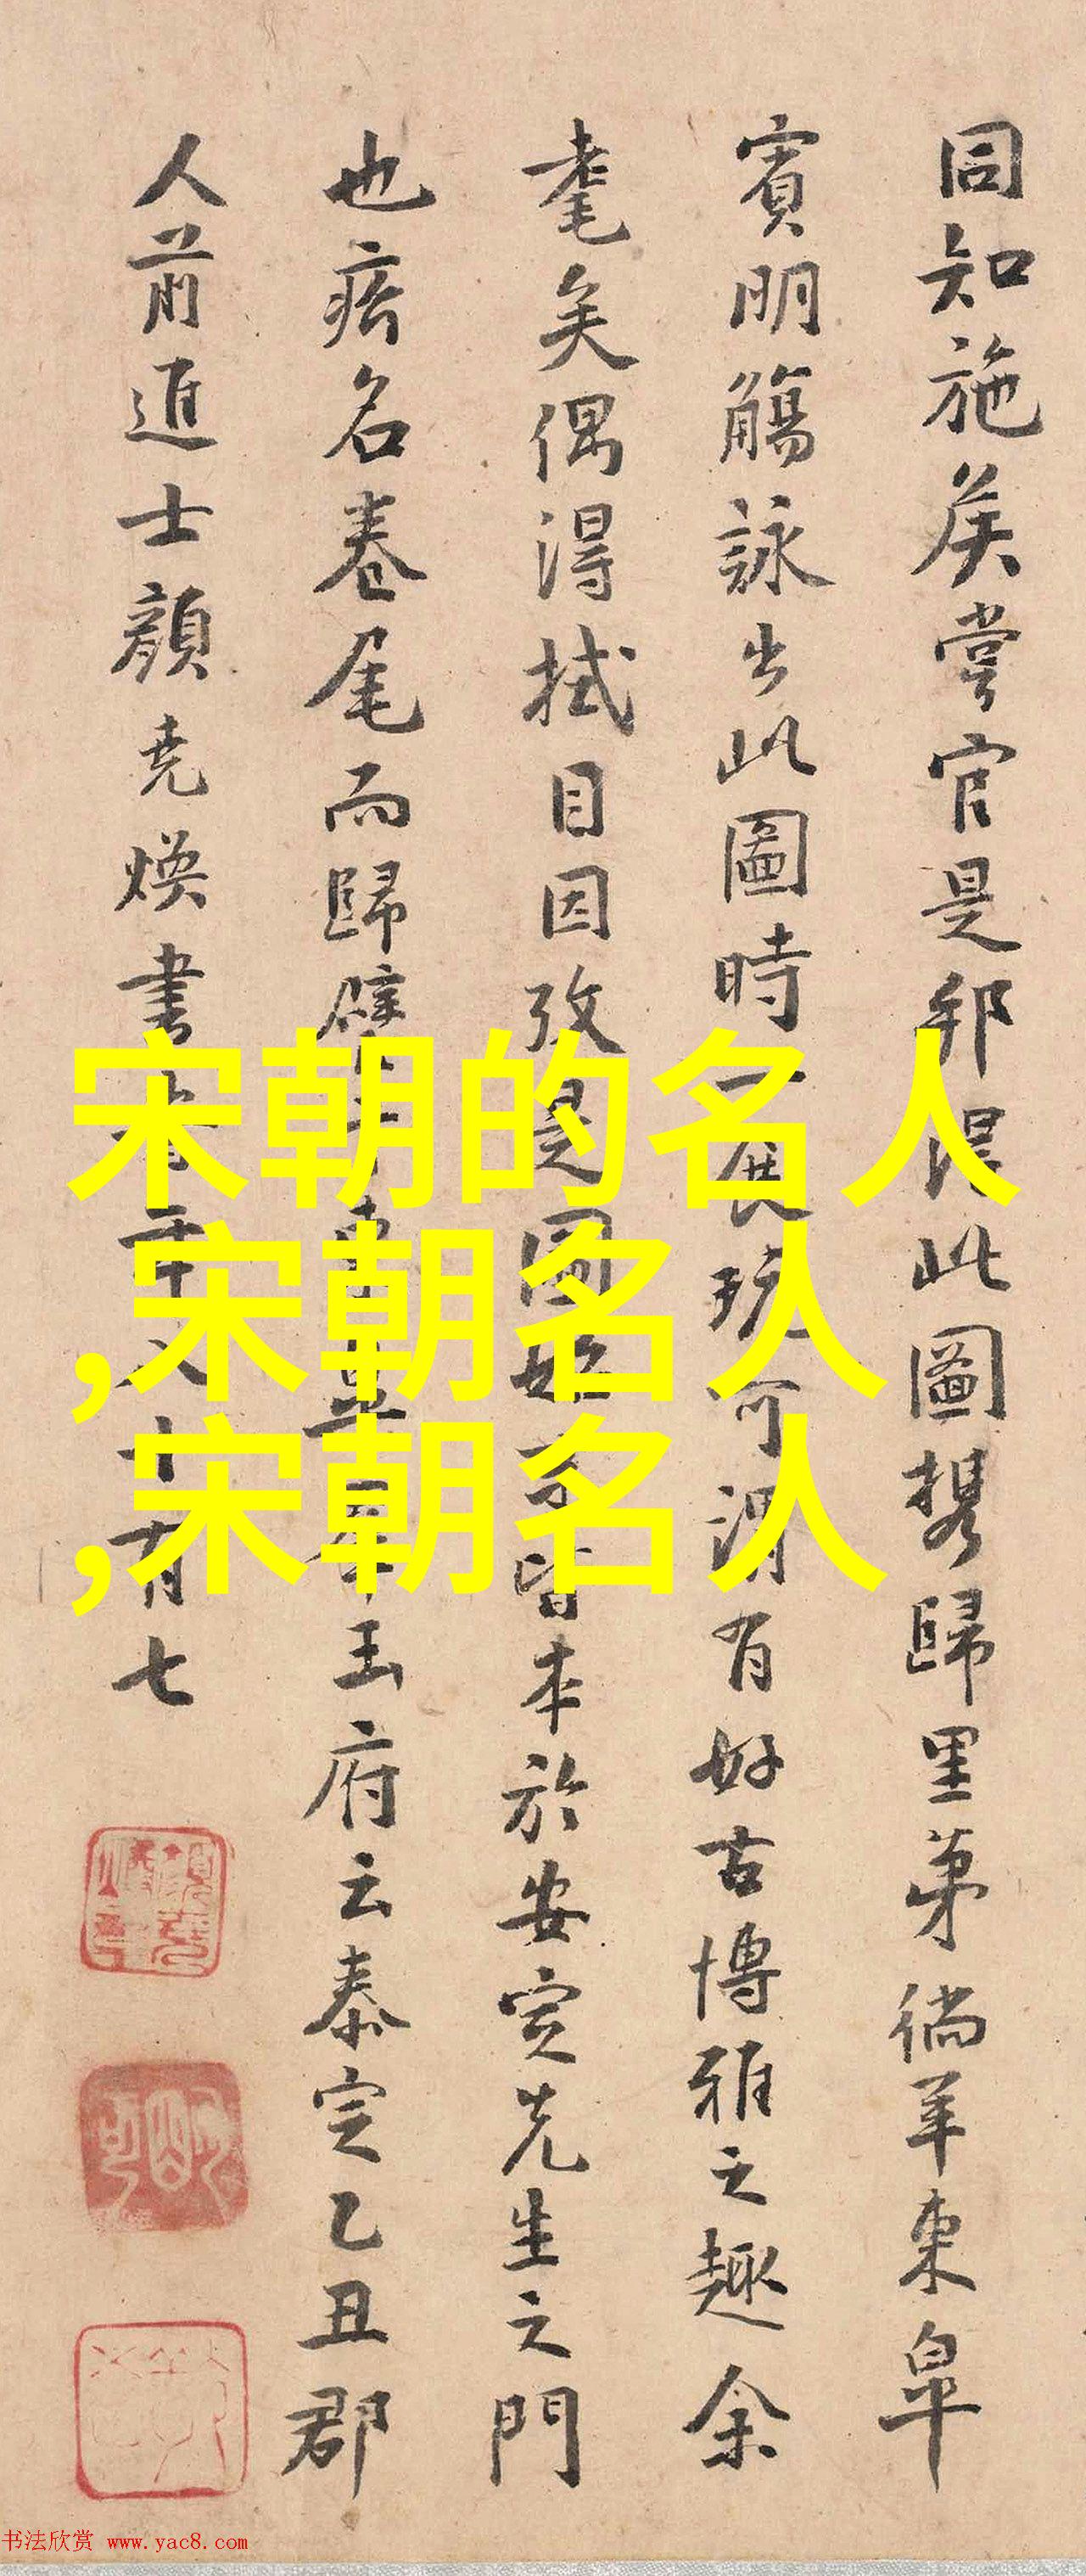 同知施矦嘗官是邦淂此圖携歸里苐徜羊東皐
賓朋觴詠出此圖時一展玩可謂有好古博雅之趣余
耄矣偶淂拭目因攷是圖皆本於安定先生之門
也名卷尾而歸璧玉府云泰定乙丑郡
人前進士顔堯煥書旹年八十有七
宋朝的名人
,宋朝名人
,宋朝名人
书法欣赏 www.yac8.com